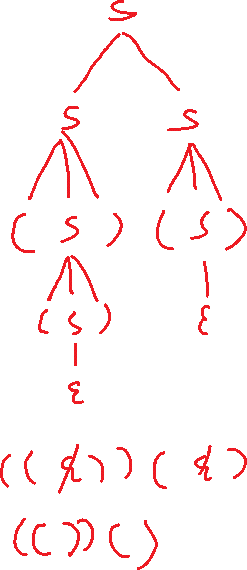 S
S S
( S ) ( S )
( S ) ε
ε
( ( ε ) ) ( ε )
( ( ) ) ( )